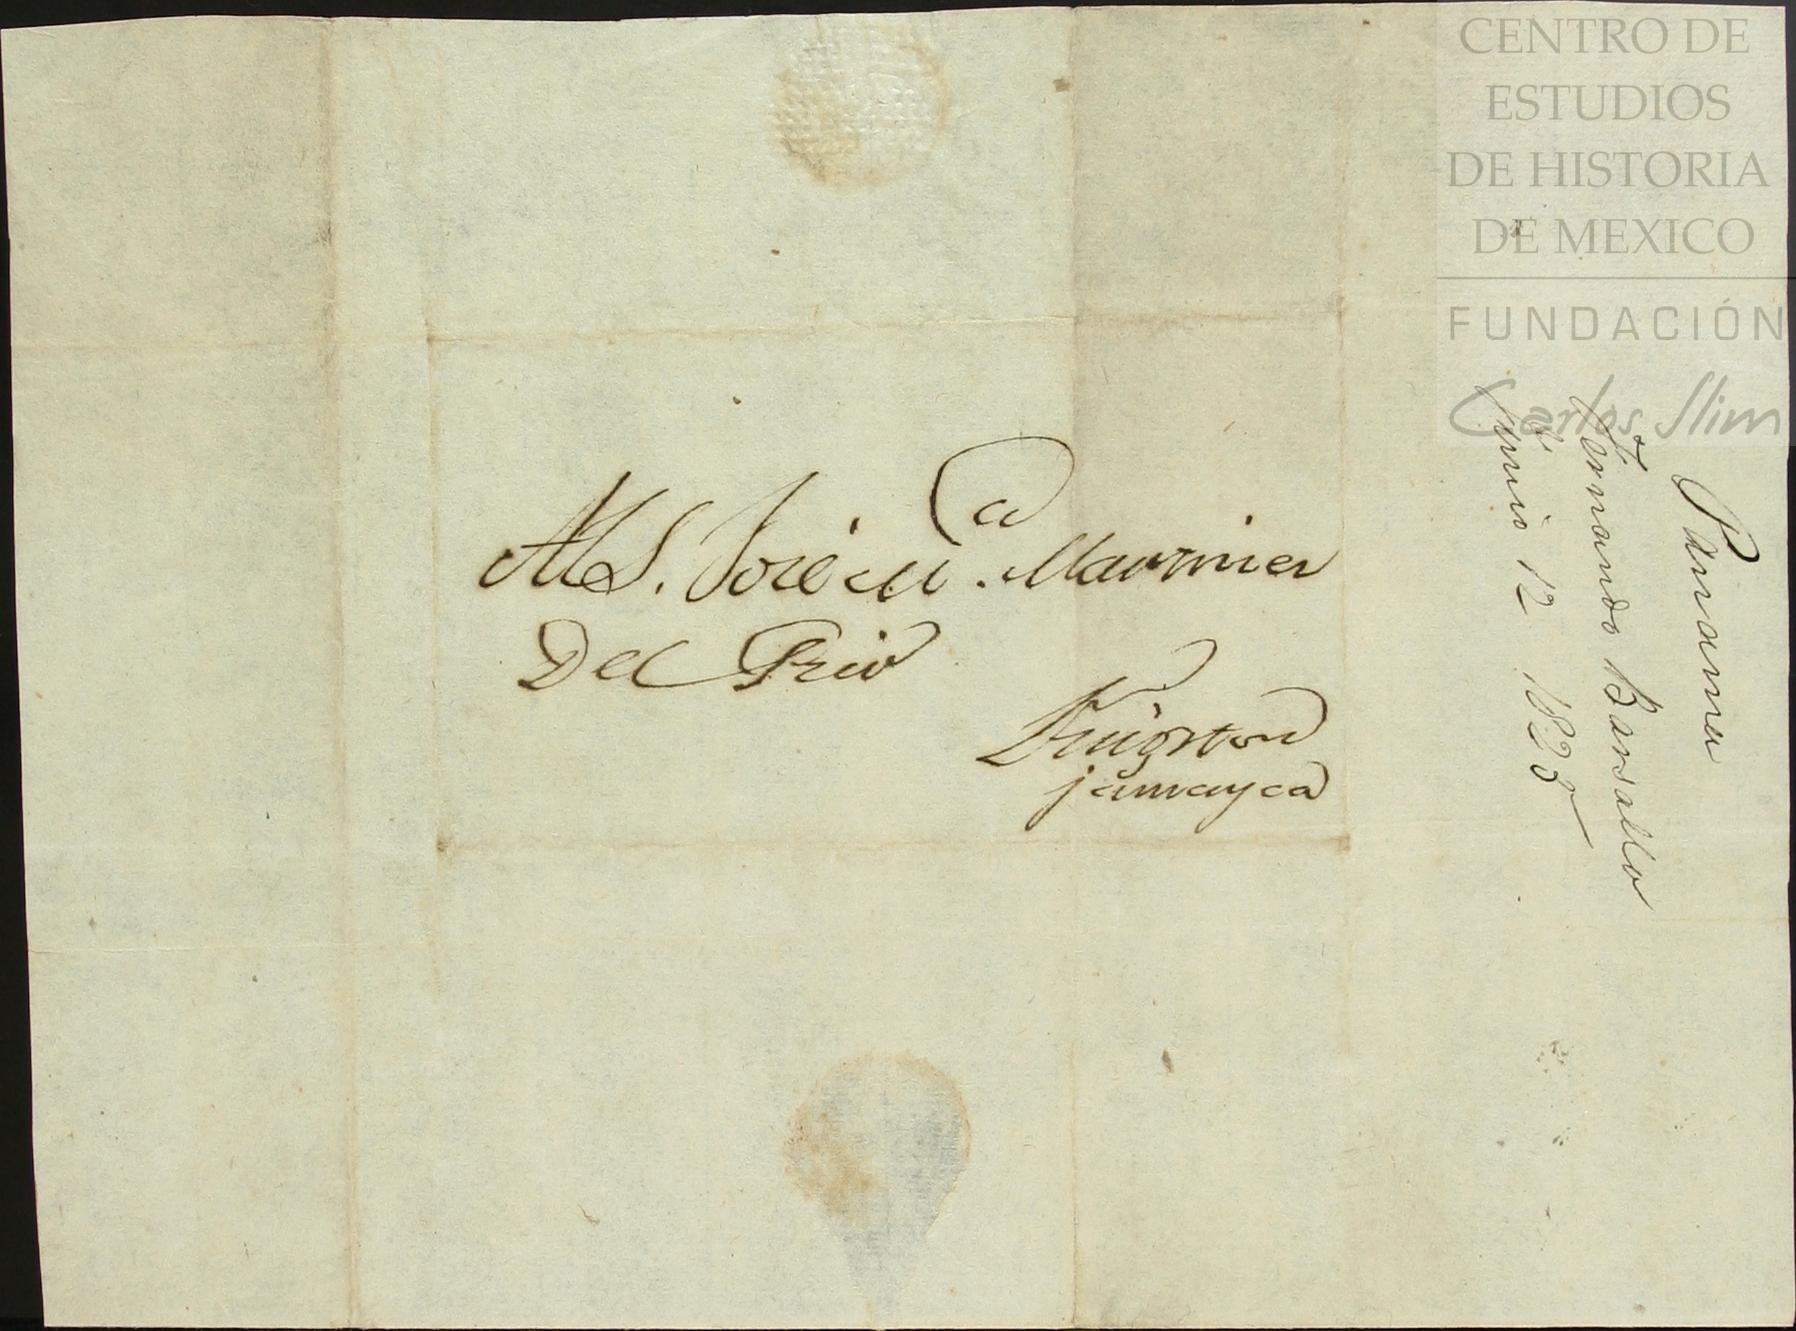 Al S. José M.ª Martinez
Del Rio
Kingston
jamayca
Panama
Fernando Barsallo
Junio 12 1828
CENTRO DE
ESTUDIOS
DE HISTORIA
DE MEXICO
FUNDACIÓN
Carlos Slim